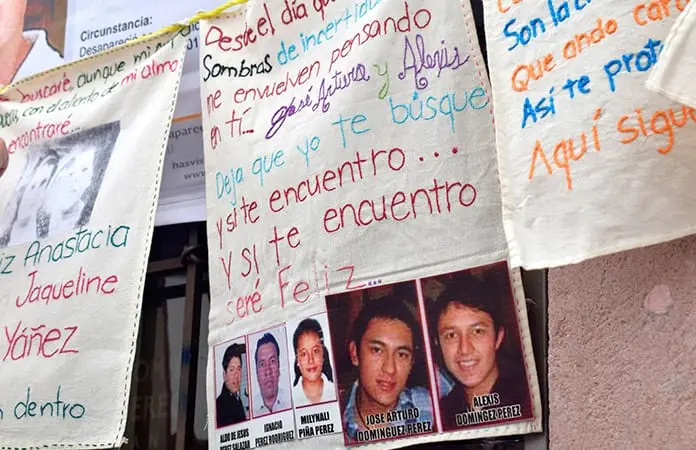 Circunstancia:
Desapareció
buscaré, aunque mi
con el aliento de mi alma
encontraré...
Anastacia
Jaqueline
Yáñez
dentro
Desde el día que
Sombras de incertidu
me envuelven pensando
en ti... José Arturo y Alexis
Deja que yo te búsque
y si te encuentro...
y si te encuentro
seré Feliz...
ALDO DE JESUS
PEREZ SALAZAR
IGNACIO
PEREZ RODRIGUEZ
MILYNALI
PIÑA PEREZ
JOSE ARTURO
DOMINGUEZ PEREZ
ALEXIS
DOMINGEZ PEREZ
Son la
Que ando
Así te
Aquí